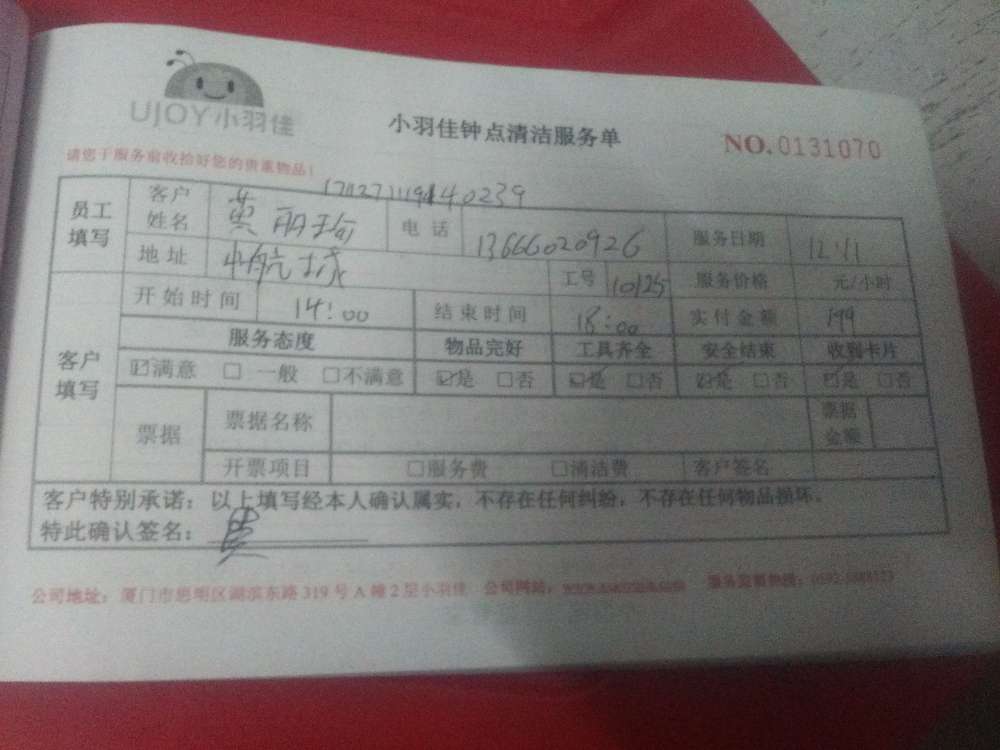 UJOY小羽佳
小羽佳钟点清洁服务单
NO.0131070
请您于服务前收拾好您的贵重物品!
员工填写 客户姓名 黄丽玲 电话 13666020926 服务日期 12.11
地址 中航城 工号 10125 服务价格 元/小时
客户填写 开始时间 14:00 结束时间 18:00 实付金额 199
服务态度 物品完好 工具齐全 安全结束 收到卡片
☑满意 □一般 □不满意 ☑是 □否 ☑是 □否 ☑是 □否 ☑是 □否
票据 票据名称 票据金额
开票项目 □服务费 □清洁费 客户签名
客户特别承诺:以上填写经本人确认属实,不存在任何纠纷,不存在任何物品损坏。
特此确认签名:
公司地址:厦门市思明区湖滨东路319号A幢2层小羽佳 公司网站: 服务监督热线: